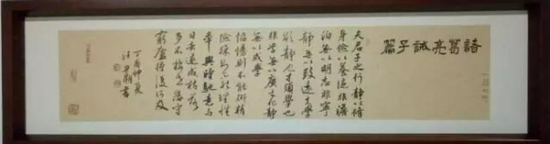 諸葛亮誡子篇
夫君子之行靜以修
身儉以養德非澹
泊無以明志非寧
靜無以致遠夫學
須靜也才須學也
非學無以廣才非靜
無以成學
慆慢則不能研精
險躁則不能理性
年與時馳意與
日去遂成枯落
多不接世悲守
窮廬將復何及
丁酉仲夏
書